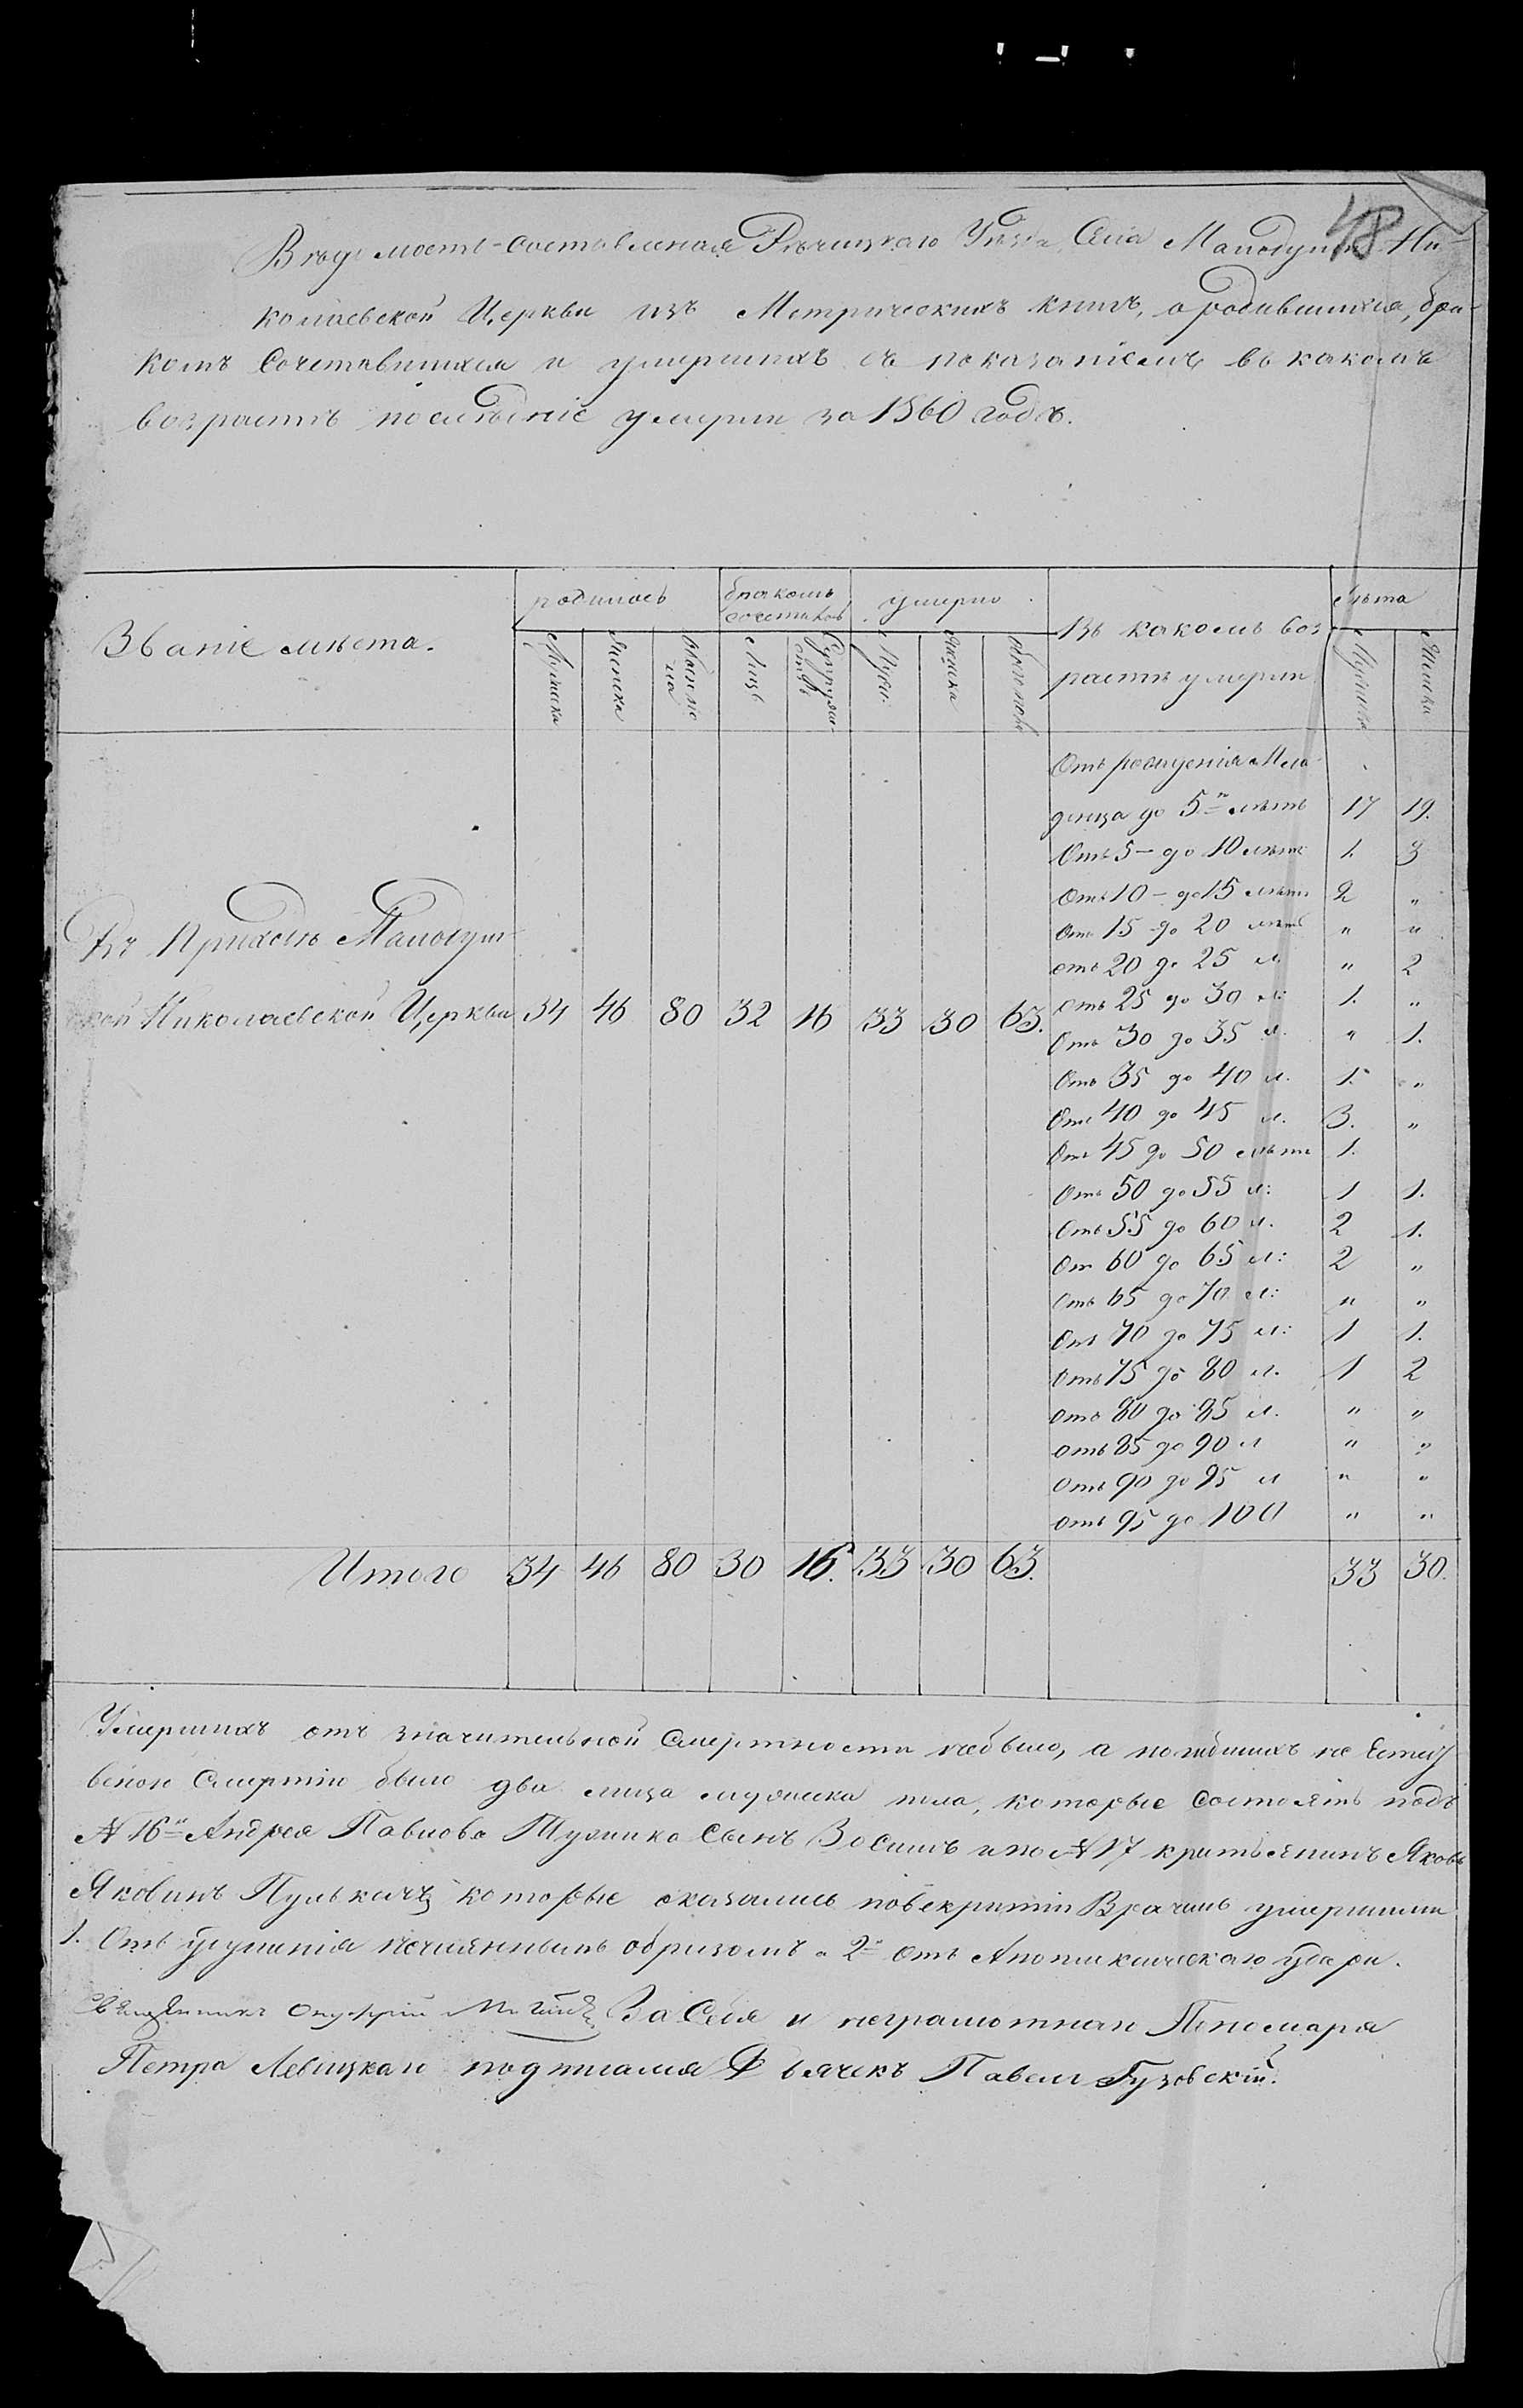 48
Вѣдомость составленая Рѣчицкаго Уѣзда Села Малодуши Ни-
колаевской Церкви изъ Метрическихъ книгъ, о родившихся, бра-
комъ Сочетавшихся и умершихъ съ показаніемъ въ какомъ
возрастѣ послѣдніе умерли за 1860 годъ.
Званіе мѣста. родилось бракомъ сочеталось умерло Въ какомъ воз- лѣта
растѣ умерли
Мужеска Женска Обоего пола Лицъ Супружествъ Муж. Женска Обоего пола Мужеска Женска
Отъ рожденія Мла-
денца до 5и лѣтъ 17 19.
Отъ 5 - до 10 лѣтъ 1. 3
Отъ 10 - до 15 лѣтъ 2 "
Отъ 15 до 20 лѣтъ " "
отъ 20 до 25 л. " 2
отъ 25 до 30 л: 1. "
Отъ 30 до 35 л. " 1.
Отъ 35 до 40 л. 1. "
Отъ 40 до 45 л. 3. "
Отъ 45 до 50 лѣтъ 1.
Отъ 50 до 55 л: 1 1.
Отъ 55 до 60 л. 2 1.
От 60 до 65 л: 2 "
Отъ 65 до 70 л: " "
Отъ 70 до 75 л: 1 1.
Отъ 75 до 80 л. 1 2
Отъ 80 до 85 л. " "
отъ 85 до 90 л " "
Отъ 90 до 95 л " "
отъ 95 до 100 " "
Въ Приходѣ Малодуш-
ской Николаевской Церкви 34 46 80 32 16 33 30 63.
Итого 34 46 80 30 16. 33 30 63. 33 30.
Умершихъ отъ значительной Смертности небыло, а погибшихъ не Естест
веной Смертію было два лица мужеска пола, которые состоятъ подъ
N 16и Андрея Павлова Сынъ Зосимъ и по N 17 Яковъ
Яковинъ которые оказались повскрытіи Врачемъ умершими
1. Отъ нечаяннымъ образомъ а 2й отъ Апоплексическаго удара.
Священникъ За Себя и неграмотнаго Пономаря
Петра Левицкаго подписался Дьячекъ Павелъ Гузовскій.